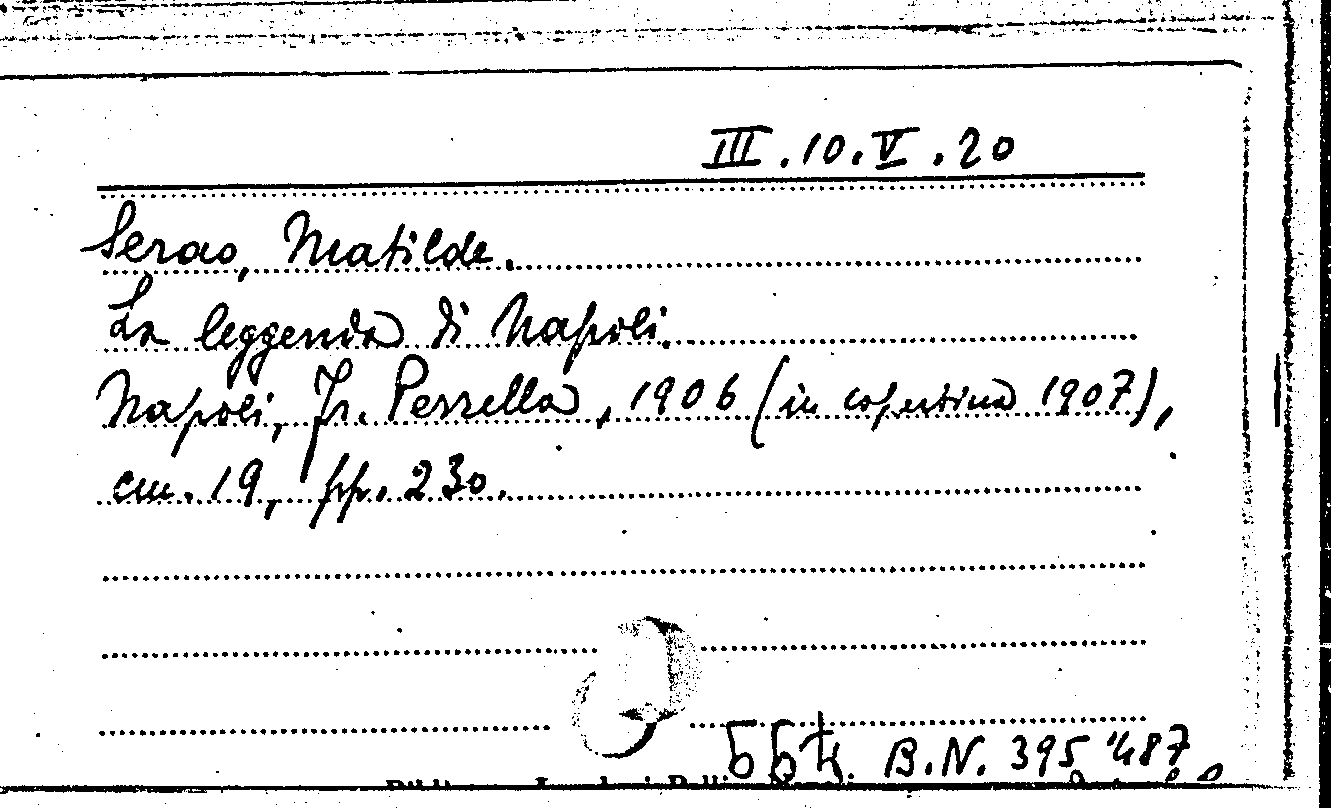 III.10.V.20
Serao, Matilde.
La leggenda di Napoli.
Napoli, Fr. Perrella, 1906 (in copertina 1907),
cm. 19, pp. 230.
B.N. 395487